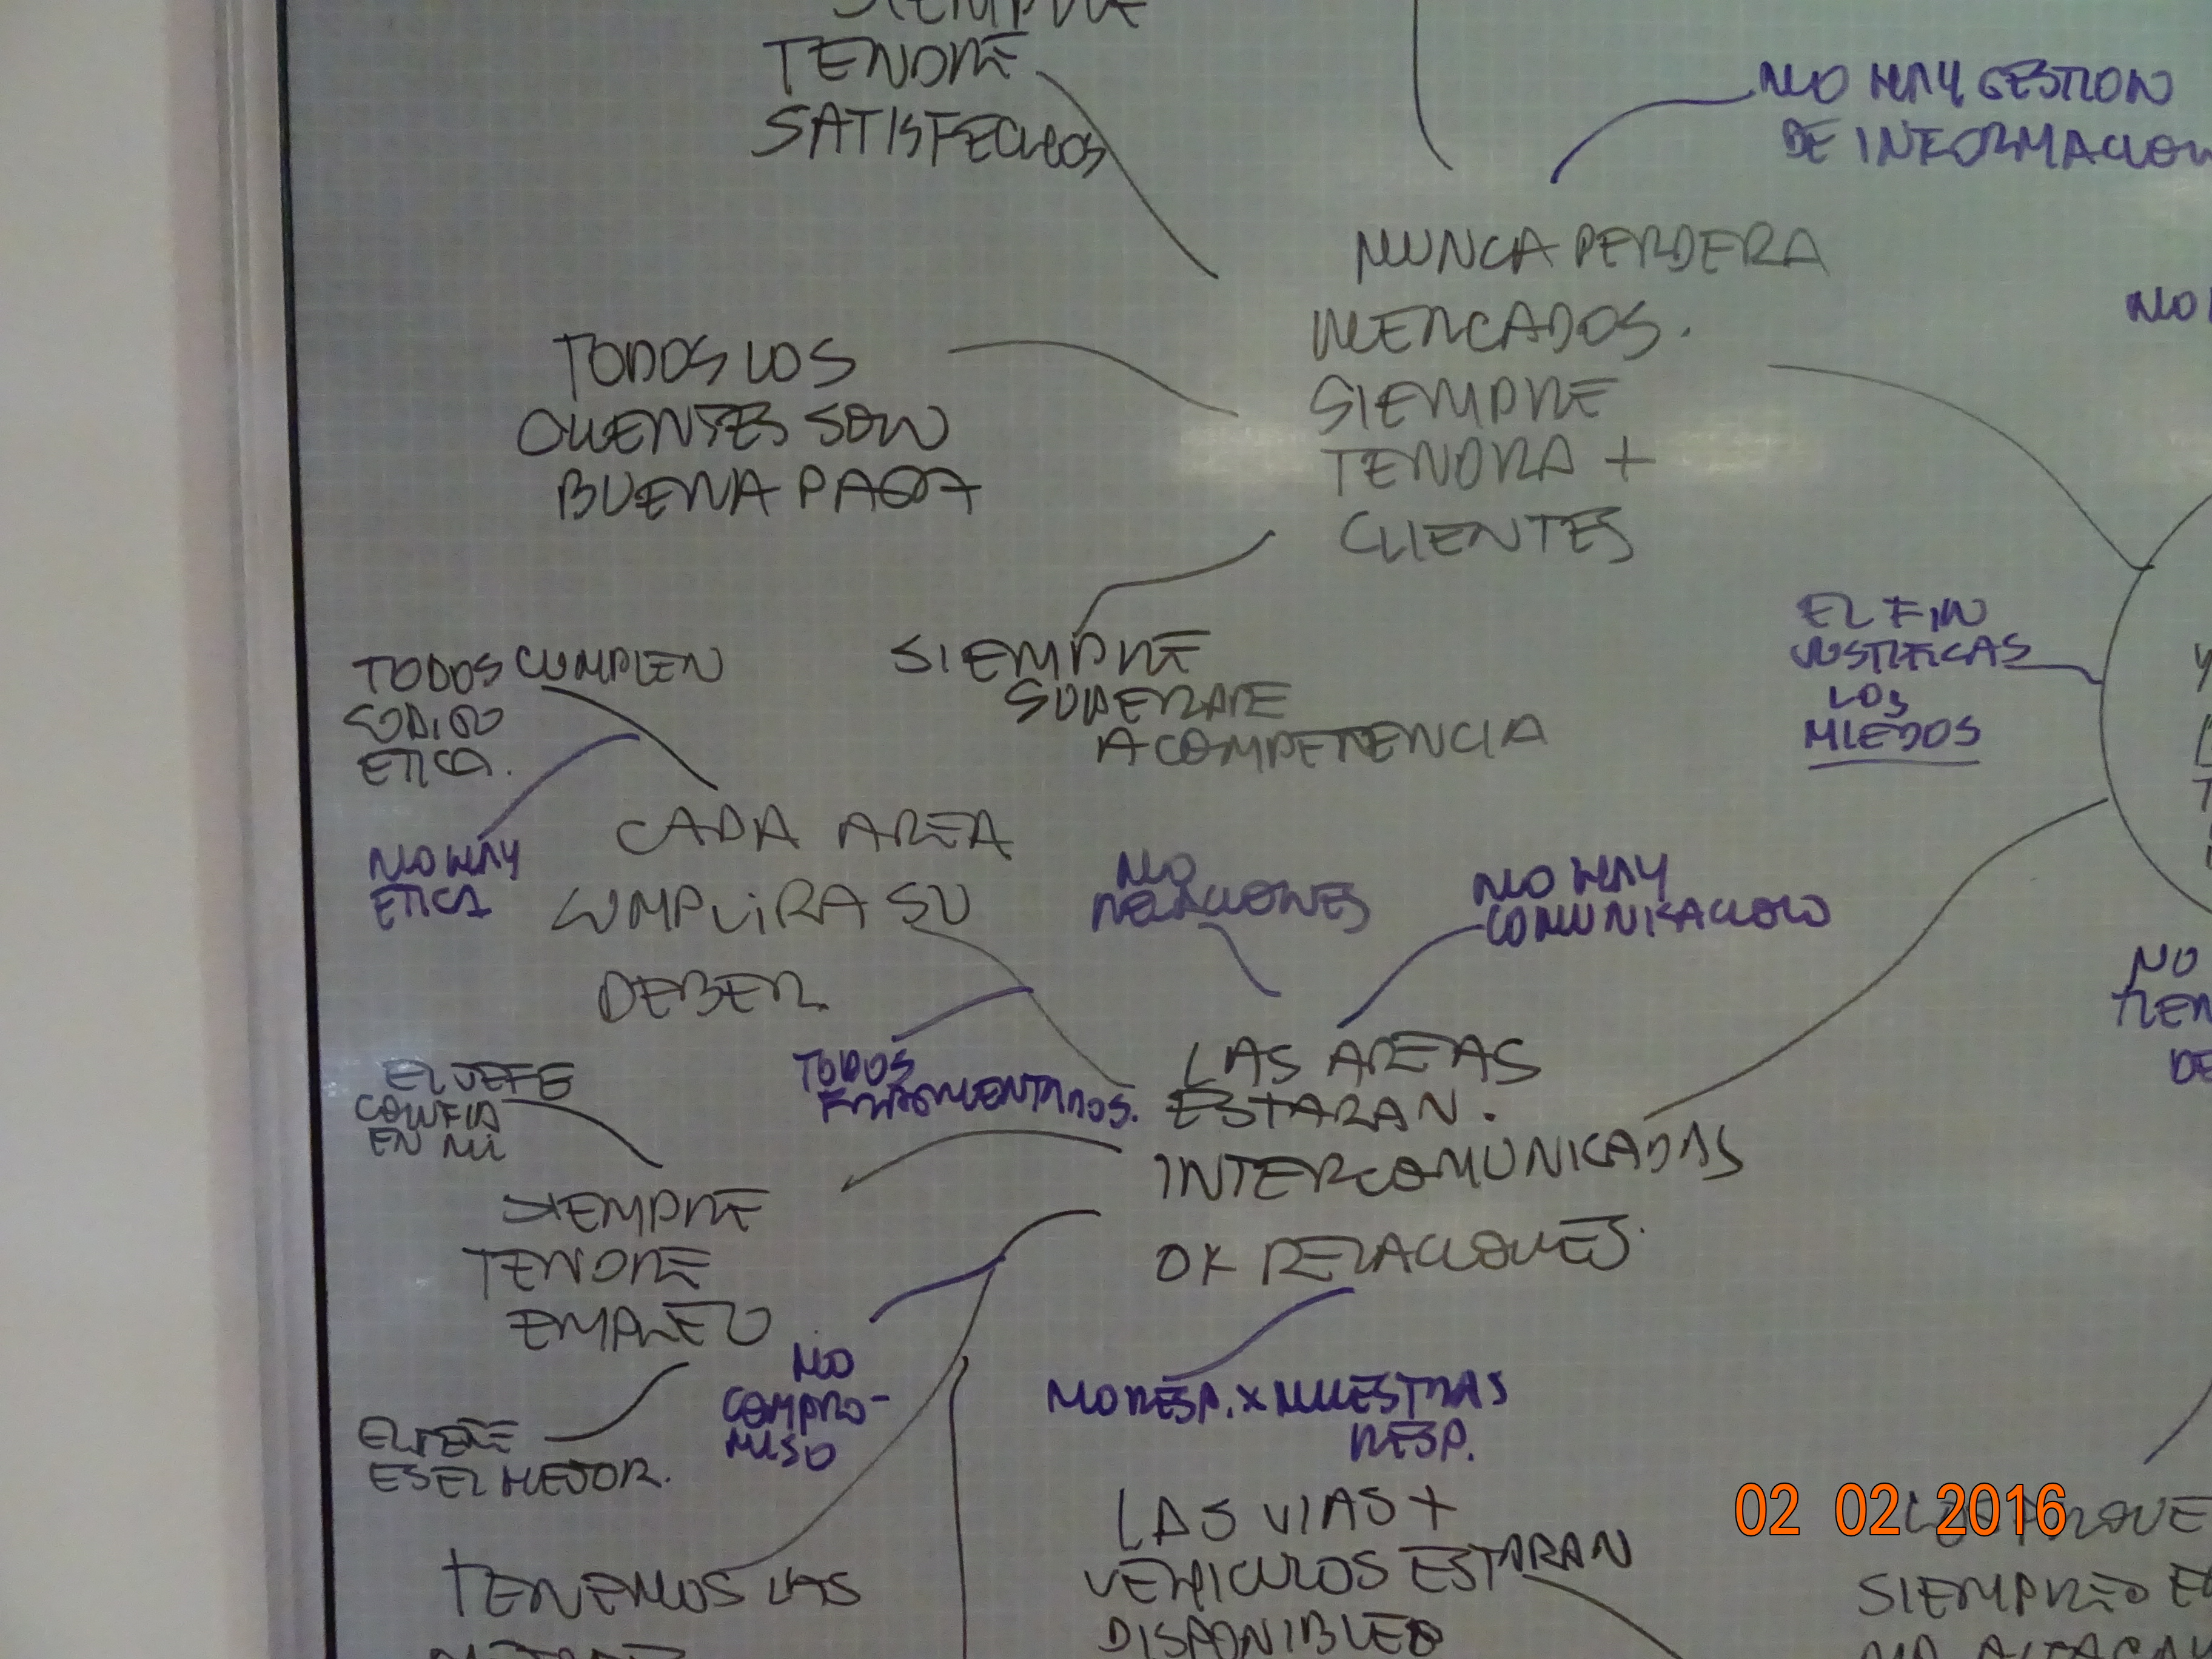 SIEMPRE
TENDRE
SATISFECHOS
NO HAY GESTION
DE INFORMACION
NUNCA PERDERA
MERCADOS.
SIEMPRE
TENDRA +
CLIENTES
NO
TODOS LOS
CLIENTES SON
BUENA PAGA
SIEMPRE
SUPERARE
A COMPETENCIA
EL FIN
JUSTIFICAS
LOS
MIEDOS
TODOS CUMPLEN
CODIGO
ETICA.
NO HAY
ETICA
CADA AREA
CUMPLIRA SU
DEBER.
NO
RELACIONES
NO HAY
COMUNICACION
NO
TIEN
DE
TODOS
FRAGMENTADOS.
LAS AREAS
ESTARAN.
INTERCOMUNICADAS
OK RELACIONES.
EL JEFE
CONFIA
EN MI
SIEMPRE
TENDRE
EMPLEO
NO
COMPRO-
MISO
EL JEFE
ES EL MEJOR.
NO RESP. X NUESTRAS
RESP.
TENEMOS LAS
LAS VIAS +
VEHICULOS ESTARAN
DISPONIBLES
02 02 2016
SIEMPRE